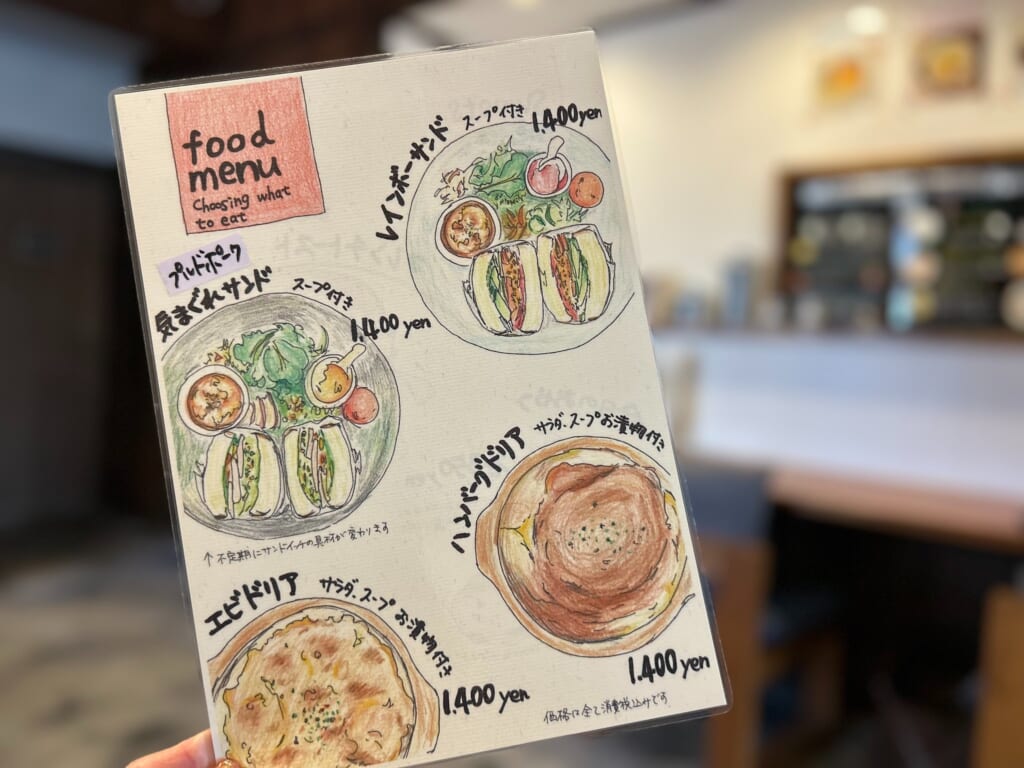 food
menu
Choosing what
to eat
レインボーサンド
スープ付き
1.400yen
プルドポーク
気まぐれサンド
スープ付き
1.400yen
↑不定期にサンドイッチの具材が変わります
ハンバーグドリア
サラダ、スープお漬物付き
1.400yen
エビドリア
サラダ、スープお漬物付き
1.400yen
価格は全て消費税込みです